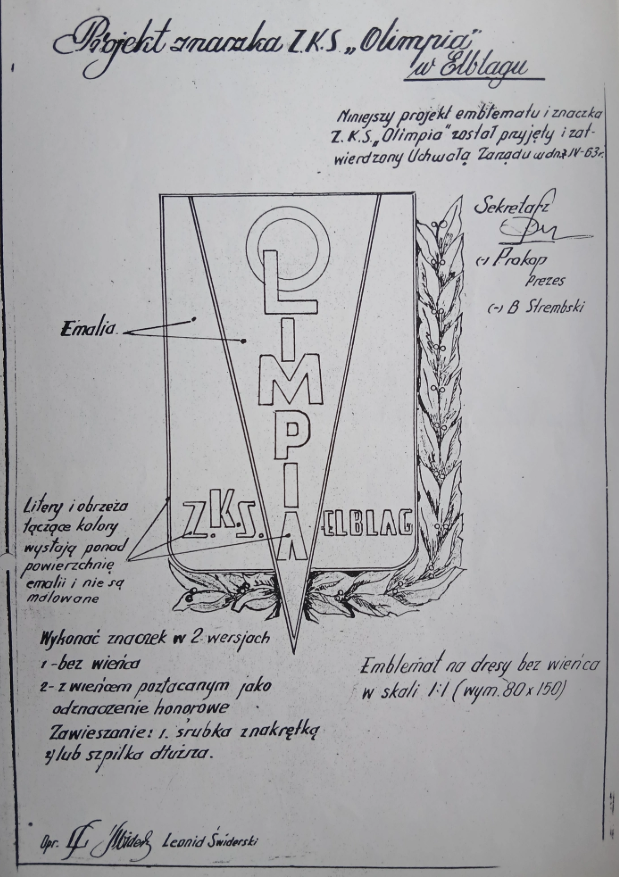 Projekt znaczka Z.K.S. „Olimpia"
w Elblagu
Niniejszy projekt emblematu i znaczka
Z.K.S „Olimpia" został przyjęty i zat-
wierdzony Uchwałą Zarządu w dn. IV-63r.
Sekretarz
(-) Prokop
Prezes
(-) B Strembski
Emalia
OLIMPIA
Z.K.S.
ELBLAG
Litery i obrzeża
łączące kolory
wystają ponad
powierzchnię
emalii i nie są
malowane
Wykonać znaczek w 2 wersjach
1 -bez wieńca
2- z wieńcem pozłacanym jako
odznaczenie honorowe
Zawieszanie: 1. śrubka z nakrętką
2) lub szpilka dłuższa.
Emblemat na dresy bez wieńca
w skali 1:1 (wym. 80 x 150)
Opr. Leonid Świderski